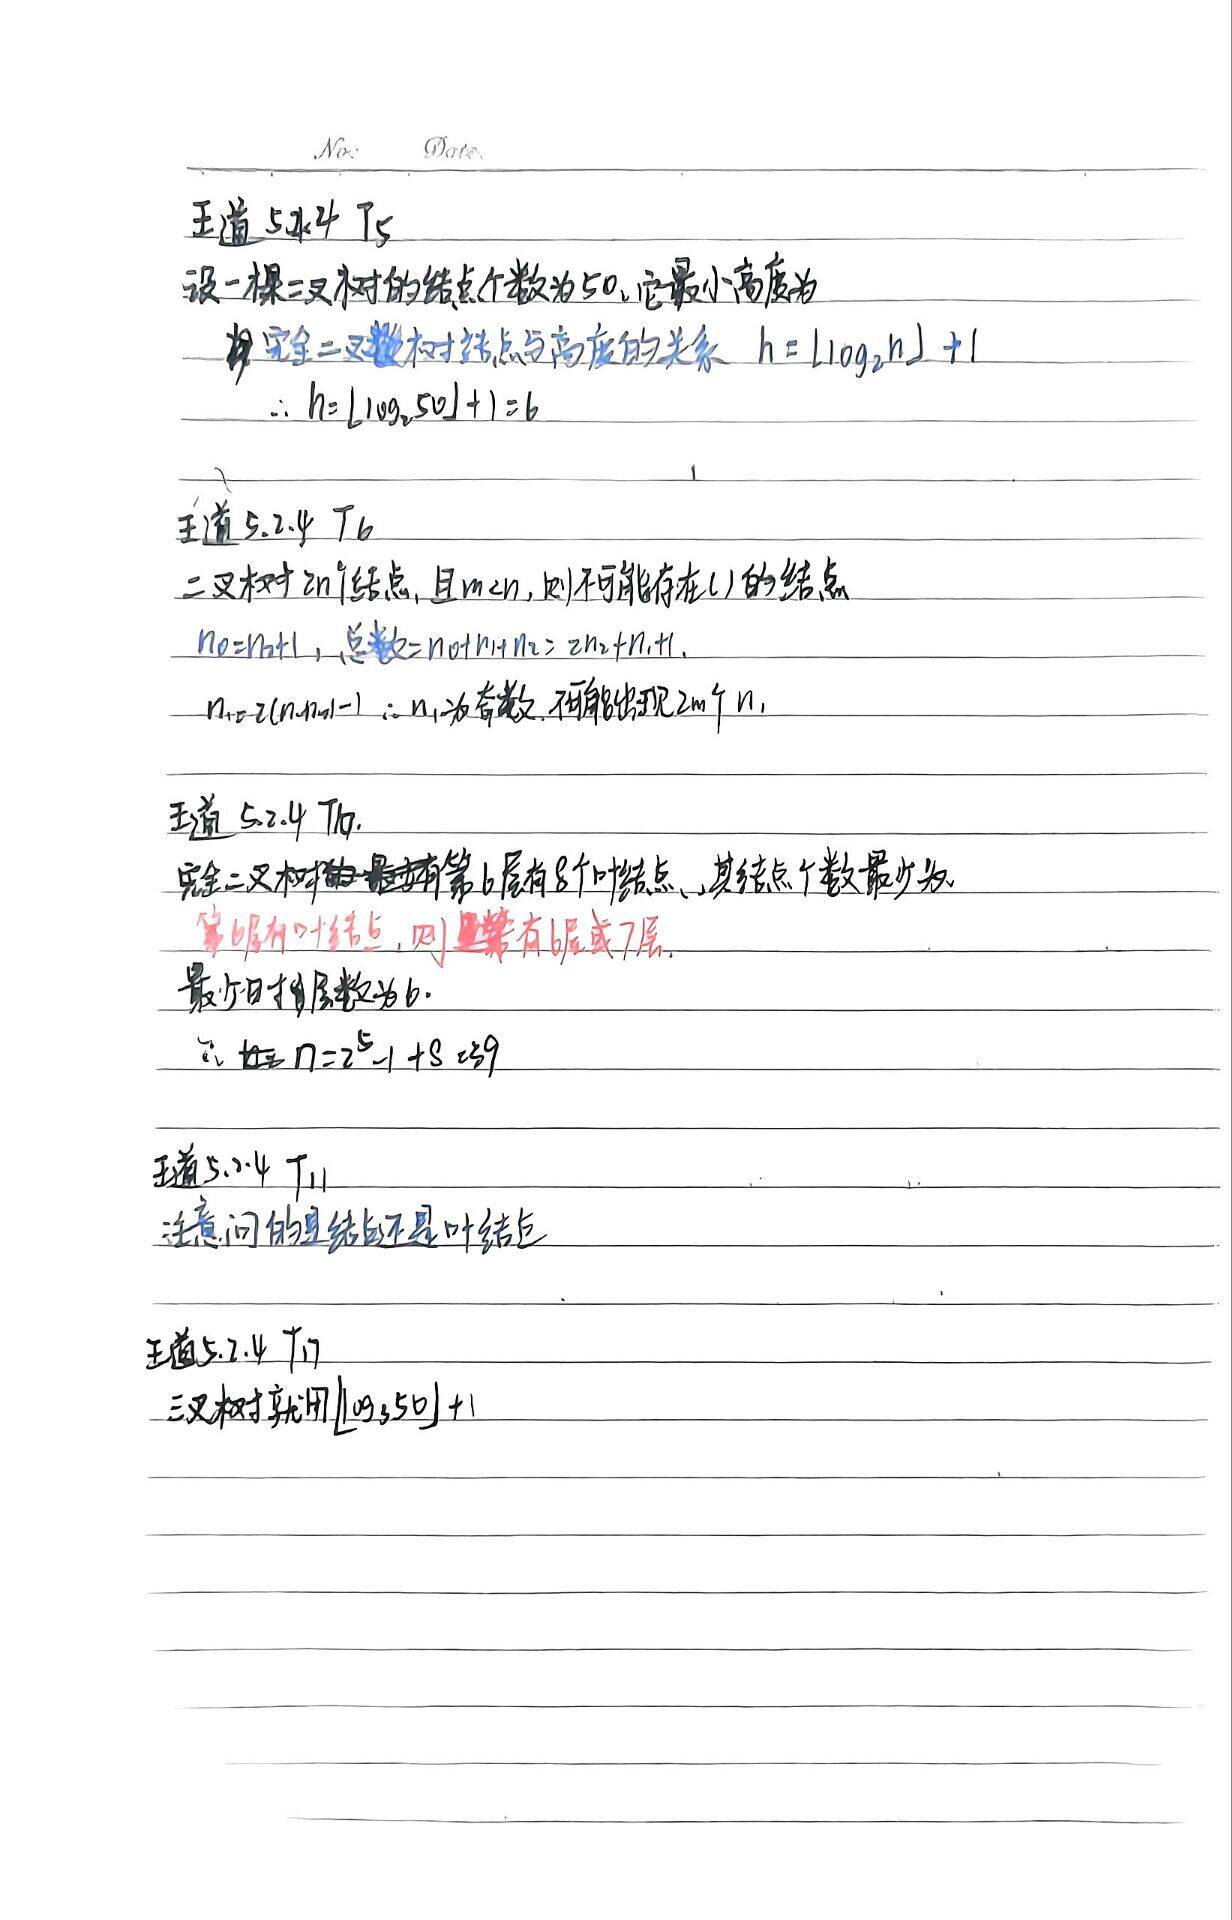 No: Date.
王道 5.2.4 T5
设一棵二叉树的结点个数为50,它最小高度为
完全二叉树结点与高度的关系 h=⌊log₂n⌋+1
∴ h=⌊log₂50⌋+1=6
王道 5.2.4 T6
二叉树2n个结点,且m<n,则不可能存在()的结点
n0=n2+1,总数=n0+n1+n2=2n2+n1+1.
∴ n1为奇数.不可能出现2m个n1
王道 5.2.4
完全二叉树第6层有8个叶结点,其结点个数最少为
第6层有叶结点,则有6层或7层.
最少时层数为6.
∴ n=2⁵-1+8=39
王道5.2.4 T11
注意问的是结点还是叶结点
王道5.2.4 T17
三叉树就用⌊log₃50⌋+1